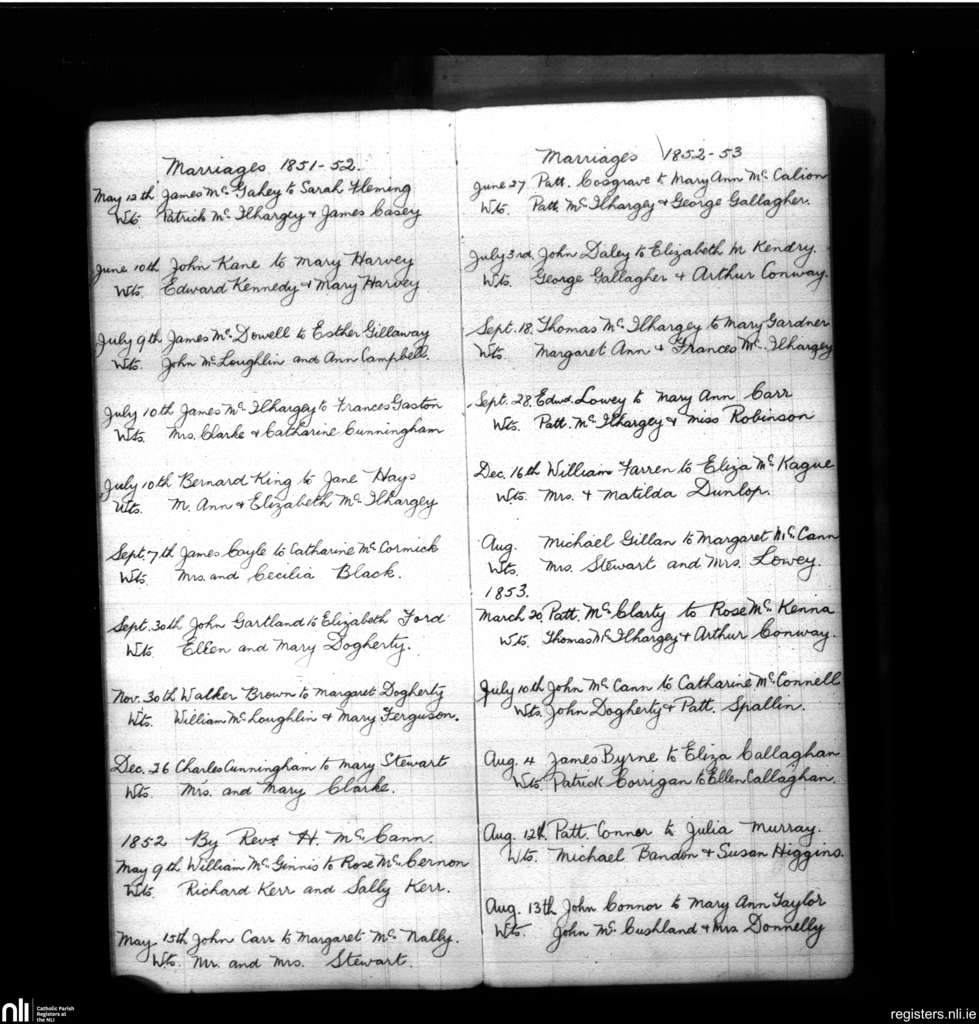 Marriages 1851-52.
May 12th James Mc Gahey to Sarah Fleming
Wts. Patrick Mc Ilhargey & James Casey
June 10th John Kane to Mary Harvey
Wts. Edward Kennedy & Mary Harvey
July 9th James Mc Dowell to Esther Gillaway
Wts. John McLoughlin and Ann Campbell.
July 10th James Mc Ilhargey to Frances Gaston
Wts. Mrs. Clarke & Catharine Cunningham
July 10th Bernard King to Jane Hays
Wts. M. Ann & Elizabeth Mc Ilhargey
Sept. 7th James Coyle to Catharine Mc Cormick
Wts. Mrs. and Cecilia Black.
Sept. 30th John Gartland to Elizabeth Ford
Wts. Ellen and Mary Dogherty.
Nov. 30th Walker Brown to Margaret Dogherty
Wts. William McLoughlin & Mary Ferguson.
Dec. 26 Charles Cunningham to Mary Stewart
Wts. Mrs. and Mary Clarke.
1852 By Revd. H. Mc Cann.
May 9th William Mc Ginnis to Rose Mc Cernon
Wts. Richard Kerr and Sally Kerr.
May 15th John Carr to Margaret Mc Nally.
Wts. Mr. and Mrs. Stewart.
Marriages 1852-53
June 27 Patt. Cosgrave to Mary Ann Mc Calion
Wts. Patt. Mc Ilhargey & George Gallagher.
July 3rd. John Daley to Elizabeth M Kendry.
Wts. George Gallagher & Arthur Conway.
Sept. 18. Thomas Mc Ilhargey to Mary Gardner
Wts. Margaret Ann & Frances Mc Ilhargey
Sept. 28. Edwd. Lowey to Mary Ann Carr
Wts. Patt. Mc Ilhargey & Miss Robinson
Dec. 16th William Farren to Eliza Mc Kague
Wts. Mrs. & Matilda Dunlop.
Aug. Michael Gillan to Margaret Mc Cann
Wts. Mrs. Stewart and Mrs. Lowey.
1853.
March 20. Patt. Mc Clarty to Rose Mc Kenna
Wts. Thomas Mc Ilhargey & Arthur Conway.
July 10th John Mc Cann to Catharine Mc Connell
Wts. John Dogherty & Patt. Spallin.
Aug. 4 James Byrne to Eliza Callaghan
Wts. Patrick Corrigan to Ellen Callaghan.
Aug. 12th. Patt. Connor to Julia Murray.
Wts. Michael Bandon & Susan Higgins.
Aug. 13th John Connor to Mary Ann Taylor
Wts. John Mc Cushland & Mrs Donnelly
nli Catholic Parish
Registers at
the NLI
registers.nli.ie